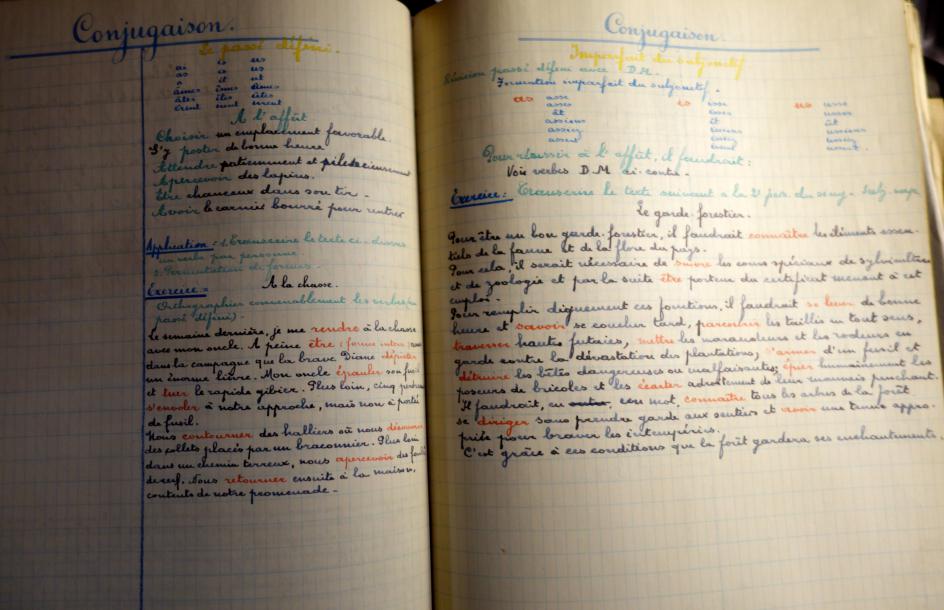 Conjugaison.
Le passé défini.
ai is us
as is us
a it ut
âmes îmes ûmes
âtes îtes ûtes
èrent irent urent
A l'affût
Choisir un emplacement favorable.
S'y poster de bonne heure.
Attendre patiemment et silencieusement
Apercevoir des lapins.
Etre chanceux dans son tir -
Avoir le carnier bourré pour rentrer
Application = 1. Transcrire le texte ci-dessus
un verbe par personne.
2. Permutation de formes -
Exercice =
A la chasse.
Orthographier convenablement les verbes (au
passé défini) -
La semaine dernière, je me rendre à la chasse
avec mon oncle. A peine être (forme interr.)
dans la campagne que la brave Diane dépister
un énorme lièvre. Mon oncle épauler son fusil
et tuer le rapide gibier. Plus loin, cinq perdreaux
s'envoler à notre approche, mais non à portée
de fusil.
Nous contourner des halliers où nous découvrir
des collets placés par un braconnier. Plus loin
dans un chemin terreux, nous apercevoir des
de cerf. Nous retourner ensuite à la maison,
contents de notre promenade -
Conjugaison.
Imparfait du subjonctif
Révision passé défini avec D.M.
Formation imparfait du subjonctif.
as asse is isse us usse
asses isses usses
ât ît ût
assions issions ussions
assiez issiez ussiez
assent issent ussent
Pour réussir à l'affût, il faudrait :
Voir verbes D.M ci-contre -
Exercice : Transcrire le texte suivant à la 2e pers. du sing. Subj. imp.
Le garde forestier.
Pour être un bon garde-forestier, il faudrait connaître les éléments essen-
tiels de la faune et de la flore du pays.
Pour cela, il serait nécessaire de suivre les cours spéciaux de sylviculture
et de zoologie et par la suite être porteur du certificat menant à cet
emploi.
Pour remplir dignement ces fonctions, il faudrait se lever de bonne
heure et savoir se coucher tard, parcourir les taillis en tout sens,
traverser hautes futaies, mettre les maraudeurs et les rôdeurs en
garde contre la dévastation des plantations, s'armer d'un fusil et
détruire les bêtes dangereuses ou malfaisantes, épier humainement les
poseurs de bricoles et les écarter adroitement de leur mauvais penchant.
Il faudrait, en outre, en un mot, connaître tous les arbres de la forêt
se diriger sans prendre garde aux sentiers et avoir une tenue appro-
priée pour braver les intempéries.
C'est grâce à ces conditions que la forêt gardera ses enchantements.